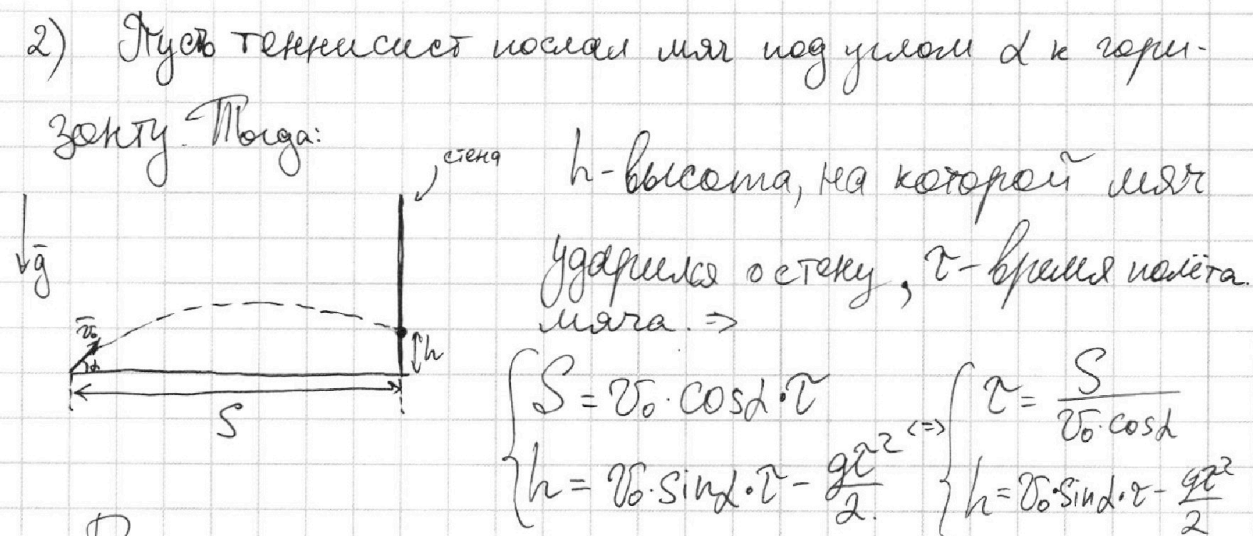 2) Пусть теннисист послал мяч под углом α к гори-
зонту. Тогда:
стена
h - высота, на которой мяч
g
ударился о стену, τ - время полёта
мяча. ⇒
v₀
α
h
S
S = v₀·cosα·τ
h = v₀·sinα·τ - gτ²/2.
<=>
τ = S/(v₀·cosα)
h = v₀·sinα·τ - gτ²/2